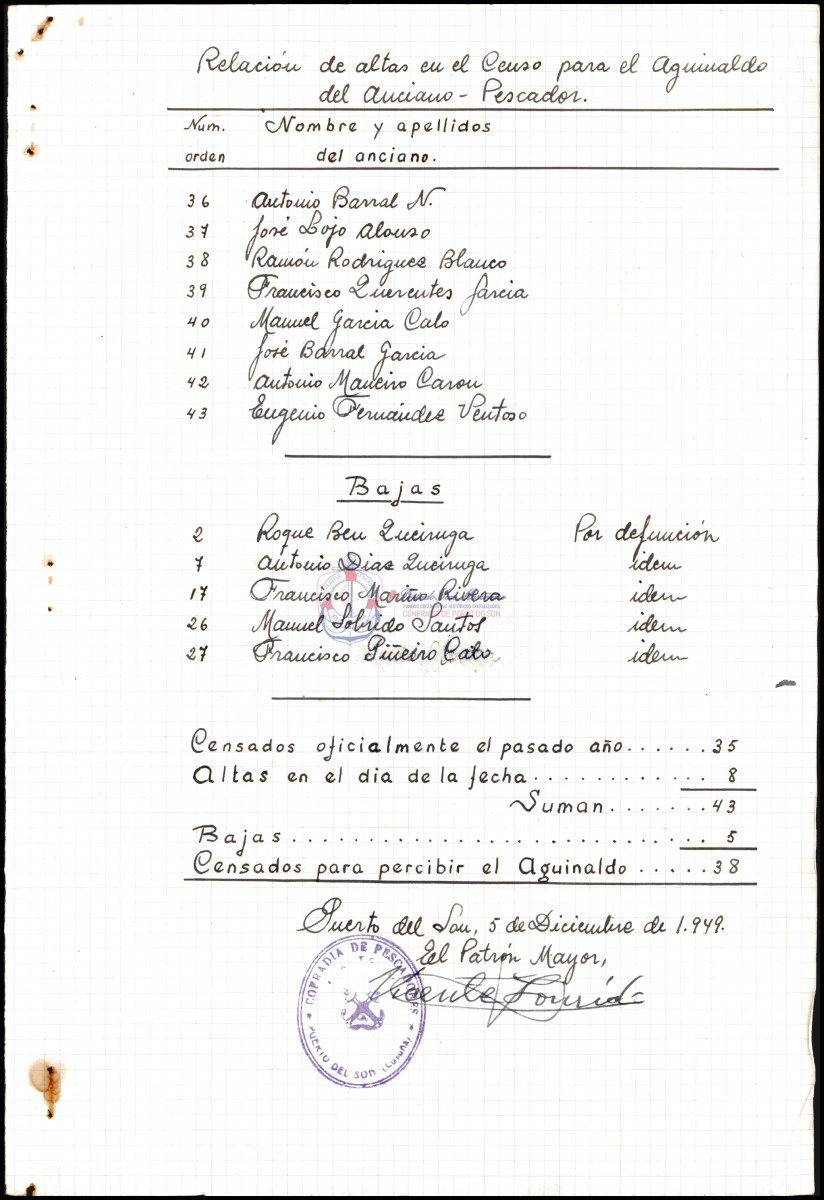 Relación de altas en el Censo para el Aguinaldo
del Anciano - Pescador.
Num. Nombre y apellidos
orden del anciano.
36 Antonio Barral N.
37 José Lojo Alonso
38 Ramón Rodriguez Blanco
39 Francisco Querentes Garcia
40 Manuel Garcia Calo
41 José Barral Garcia
42 Antonio Maneiro Carou
43 Eugenio Fernández Ventoso
Bajas
2 Roque Ben Queiruga Por defunción
7 Antonio Diaz Queiruga idem
17 Francisco Mariño Rivera idem
FONDOS DOCUMENTALES HISTÓRICOS DIGITALIZADOS
CONFRARÍA DE PORTO DO SON
26 Manuel Sobrido Santos idem
27 Francisco Piñeiro Cato idem
Censados oficialmente el pasado año......35
Altas en el dia de la fecha............ 8
Suman.......43
Bajas............................. 5
Censados para percibir el Aguinaldo.....38
Puerto del Son, 5 de Diciembre de 1.949.
El Patrón Mayor,
Vicente
COFRADIA DE PESCADORES
PUERTO DEL SON (Coruña)